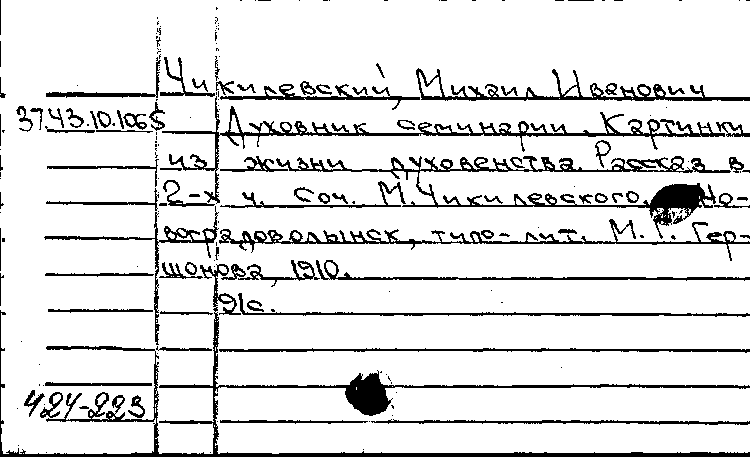 Чикилевский, Михаил Иванович
37.43.10.1065 Духовник семинарии. Картинки
из жизни духовенства. Рассказ в
2-х ч. Соч. М. Чикилевского. Но-
воградоволынск, типо-лит. М. Г. Гер-
шонова, 1910.
91с.
424-223